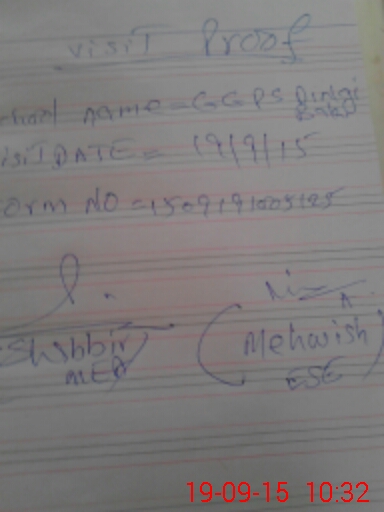 visit Proof
chool name = GGPS Dingi
isiT DATE = 19/9/15
orm NO = 1509191005125
Shabbir
MEA
(Mehwish)
ESE
19-09-15 10:32